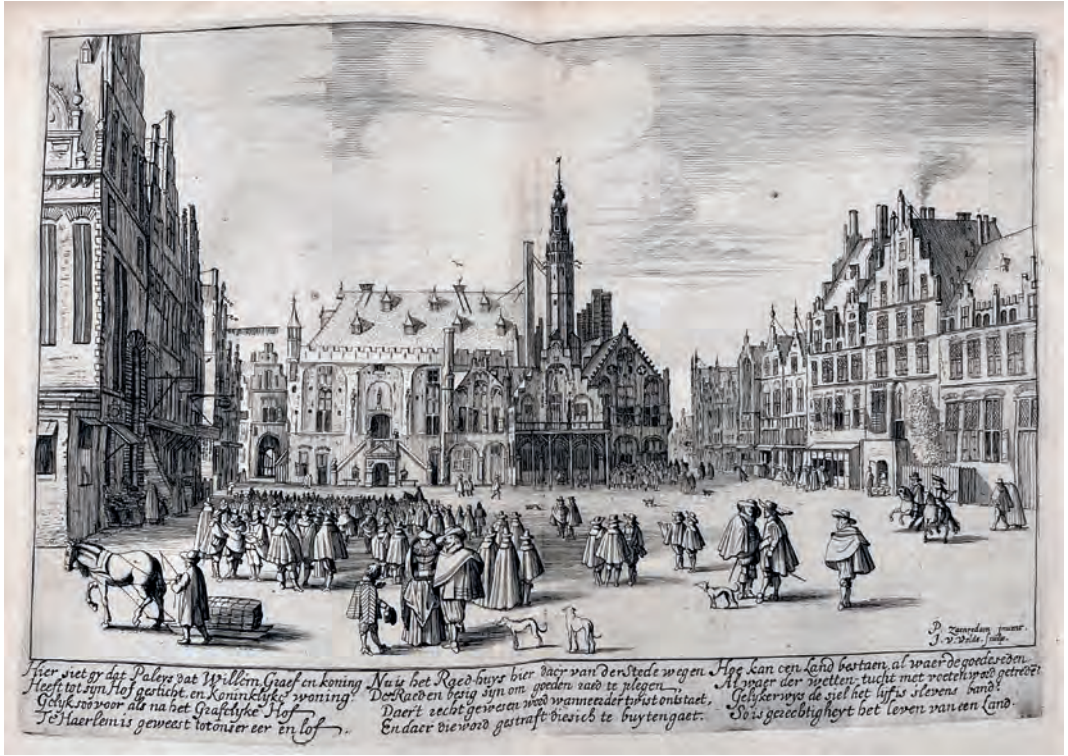 P. Zaenredam invent.
J. v. Velde. sculp.
Hier siet gy dat Paleys dat Willem Graef en koning
Heeft tot syn Hof gesticht, en Koninklyke woning.
Gelyk soo voor als na het Grafelyke Hof
Te Haerlem is geweest tot onser eer en lof.
Nu is het Raed-huys hier daer van der Stede wegen
De Raeden besig syn om goeden raed te plegen,
Daer't recht gewesen word wanneeder twist ontstaet,
En daer die word gestraft die sich te buyten gaet.
Hoe kan een Land bestaen, al waer de goede seden
Al waer der wetten-tucht met voeten word getreden
Gelykerwys de siel het lyf is slevens band:
So is gerechtigheyt het leven van een Land.